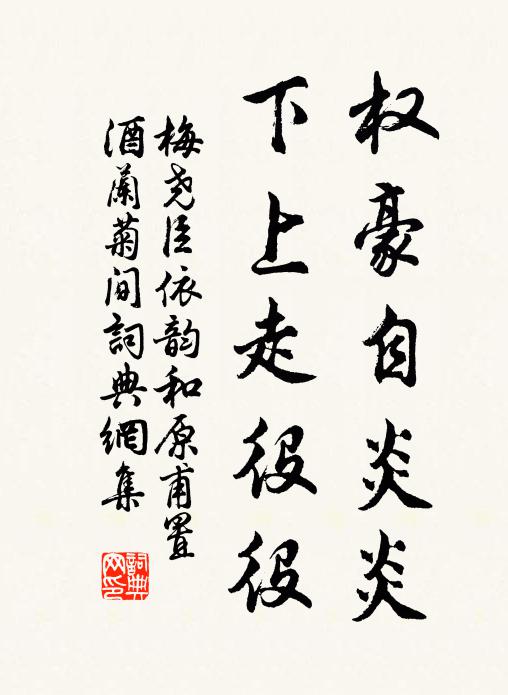 权豪自炎炎
下上走役役
梅尧臣依韵和原甫置
酒蘭菊间詞典網集
詞典
网印